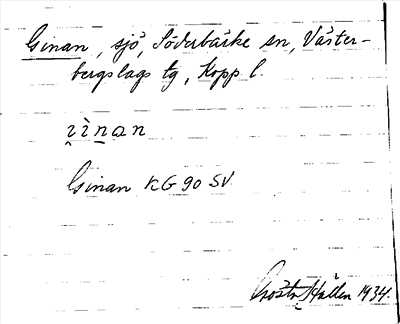 Ginan, sjö, Söderbärke sn, Väster-
bergslags tg, Kopp l.
Ginan KG 90 SV
Hällen 1934.